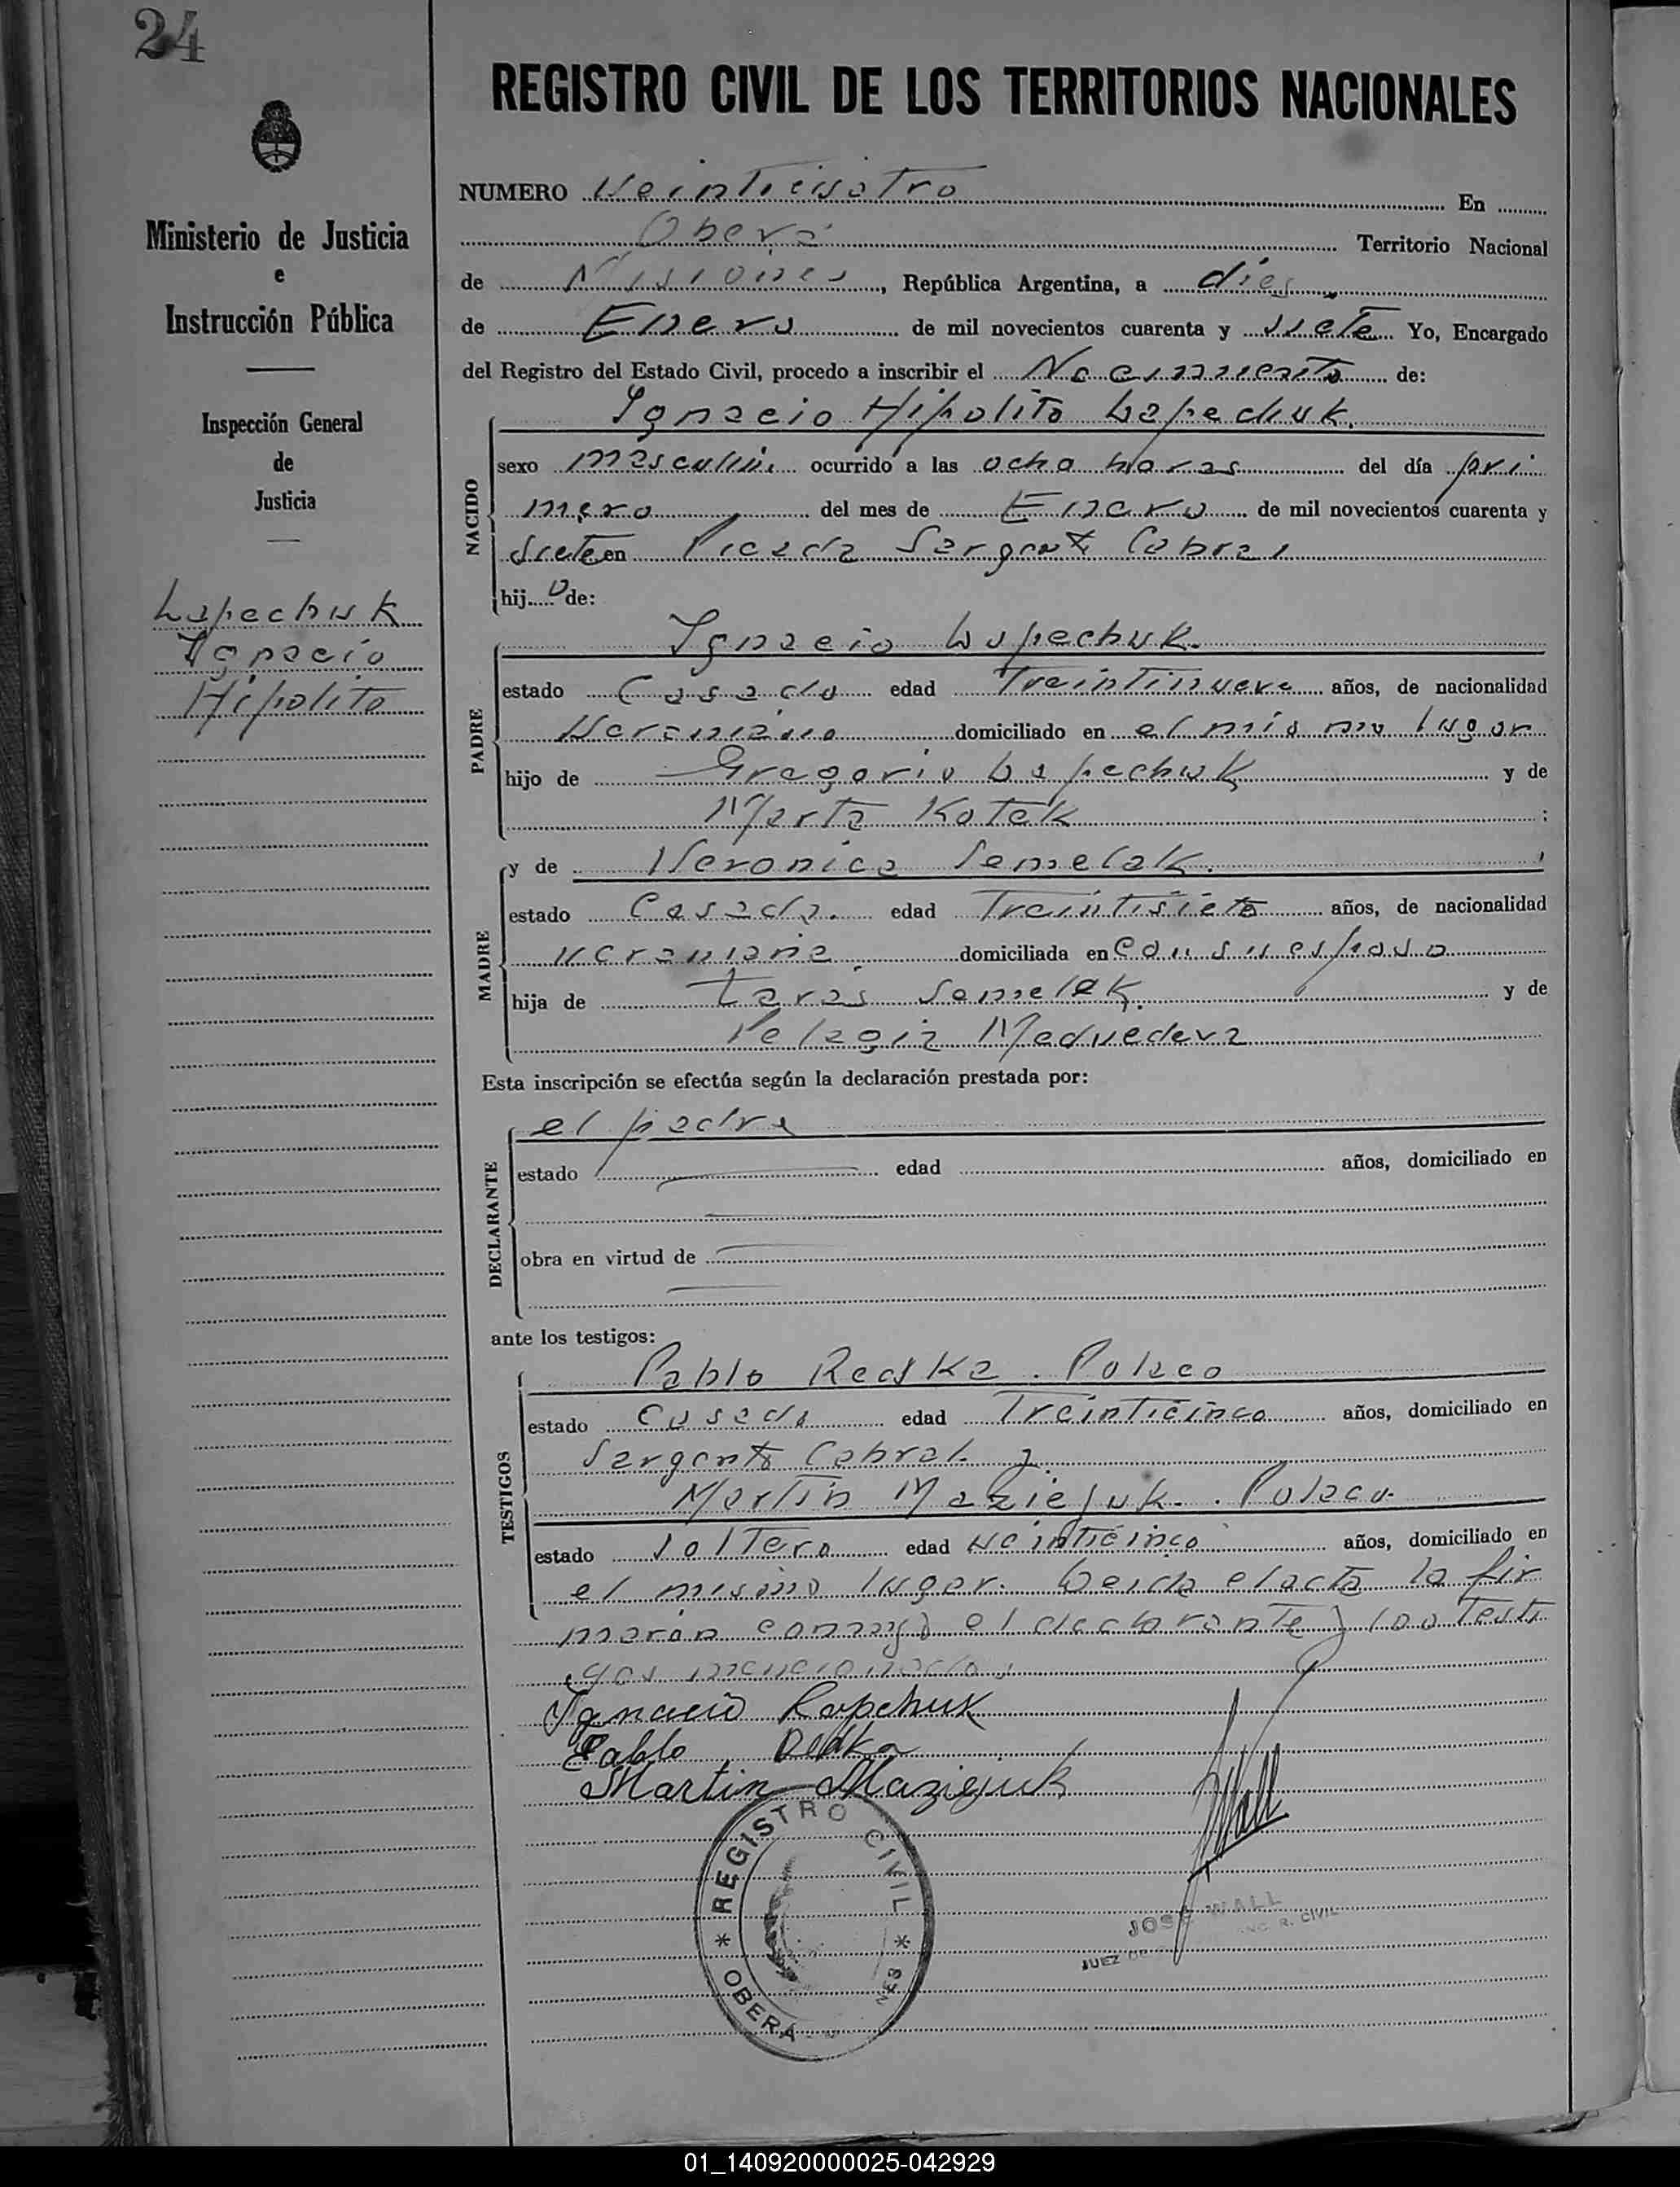 24
REGISTRO CIVIL DE LOS TERRITORIOS NACIONALES
Ministerio de Justicia
e
Instrucción Pública
Inspección General
de
Justicia
Lapechuk
Ignacio
Hipolito
NUMERO Veinticuatro En
Oberá Territorio Nacional
de Misiones, República Argentina, a dies
de Enero de mil novecientos cuarenta y siete Yo, Encargado
del Registro del Estado Civil, procedo a inscribir el Nacimiento de:
NACIDO
Ignacio Hipolito Lapechuk.
sexo masculin ocurrido a las ocho horas del día pri
mero del mes de Enero de mil novecientos cuarenta y
siete en Picada Sargento Cabral
hijo de:
PADRE
Ignacio Lapechuk.
estado Casado edad Treintinueve años, de nacionalidad
Ucraniano domiciliado en el mismo lugar
hijo de Gregorio Lapechuk y de
Marta Kotek ;
MADRE
y de Veronica Semelak.
estado Casada. edad Treintisiete años, de nacionalidad
ucraniana domiciliada en con su esposo
hija de Taras Semelak. y de
Pelagia Medvedeva
Esta inscripción se efectúa según la declaración prestada por:
DECLARANTE
el padre
estado edad años, domiciliado en
obra en virtud de
ante los testigos:
TESTIGOS
Pablo Redka. Polaco
estado Casado edad Treinticinco años, domiciliado en
Sargento Cabral y
Martin Maziejuk. Polaco.
estado soltero edad veinticinco años, domiciliado en
el mismo lugar. Leida el acta la fir
maron conmigo el declarante y los testi
gos mencionados
Ignacio Lapchuk
Pablo Redka
Martin Maziejuk
JWall
REGISTRO CIVIL
OBERÁ
JOSÉ WALL
JUEZ DE ENC. R. CIVIL
01_140920000025-042929